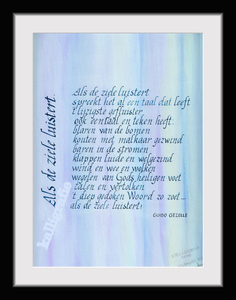 Als de ziele luistert
Als de ziele luistert
spreekt het al een taal dat leeft
't lijzigste gefluister
ook een taal en teken heeft:
blaren van de bomen
kouten met malkaar gezwind
baren in de stromen
klappen luide en welgezind
wind en wee en wolken
wegelen van Gods heiligen voet
talen en vertolken
't diep gedoken Woord zo zoet...
als de ziele luistert!
GUIDO GEZELLE